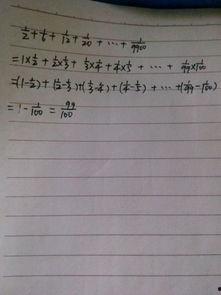 1/2 + 1/6 + 1/12 + 1/20 + ··· + 1/9900
= 1×1/2 + 1/2×1/3 + 1/3×1/4 + 1/4×1/5 + ··· + 1/99×1/100
=(1-1/2) + (1/2-1/3)+(1/3-1/4)+(1/4-1/5)+ ··· +(1/99-1/100)
= 1 - 1/100 = 99/100